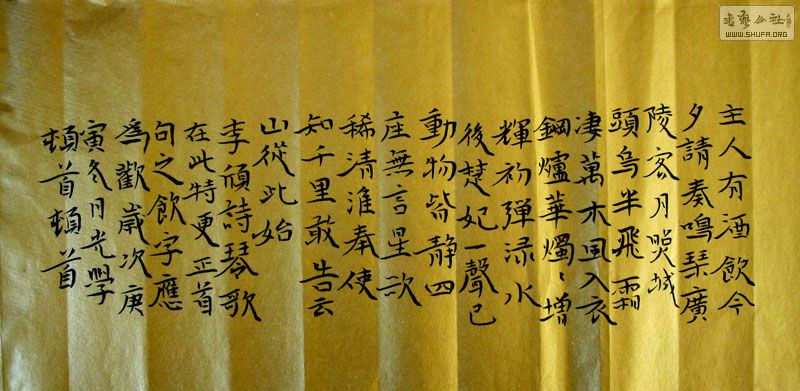 主人有酒飲今
夕請奏鳴琹廣
陵客月照城
頭烏半飛霜
凄萬木風入衣
鋼爐華燭〻增
輝初彈渌水
後楚妃一聲已
動物皆静四
庄無言星欲
稀清淮奉使
知千里敢告云
山從此始
李頎詩琴歌
在此特更正首
句之飲字應
為歡歲次庚
寅冬月光學
頓首頓首
書藝公社
WWW.SHUFA.ORG